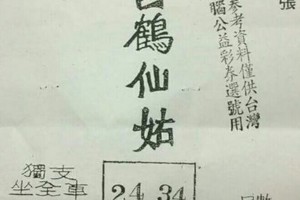 張
參考資料僅供台灣
腦公益彩券選號用
鶴仙姑
獨支
坐全車
24 34